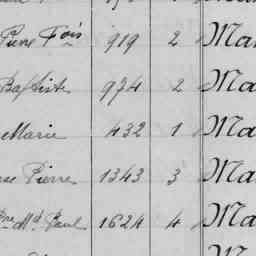 Pierre Fois 919 2 Ma
Baptiste 974 2 Ma
Marie 432 1 Ma
Pierre 1343 3 Ma
Md Paul 1624 4 Ma